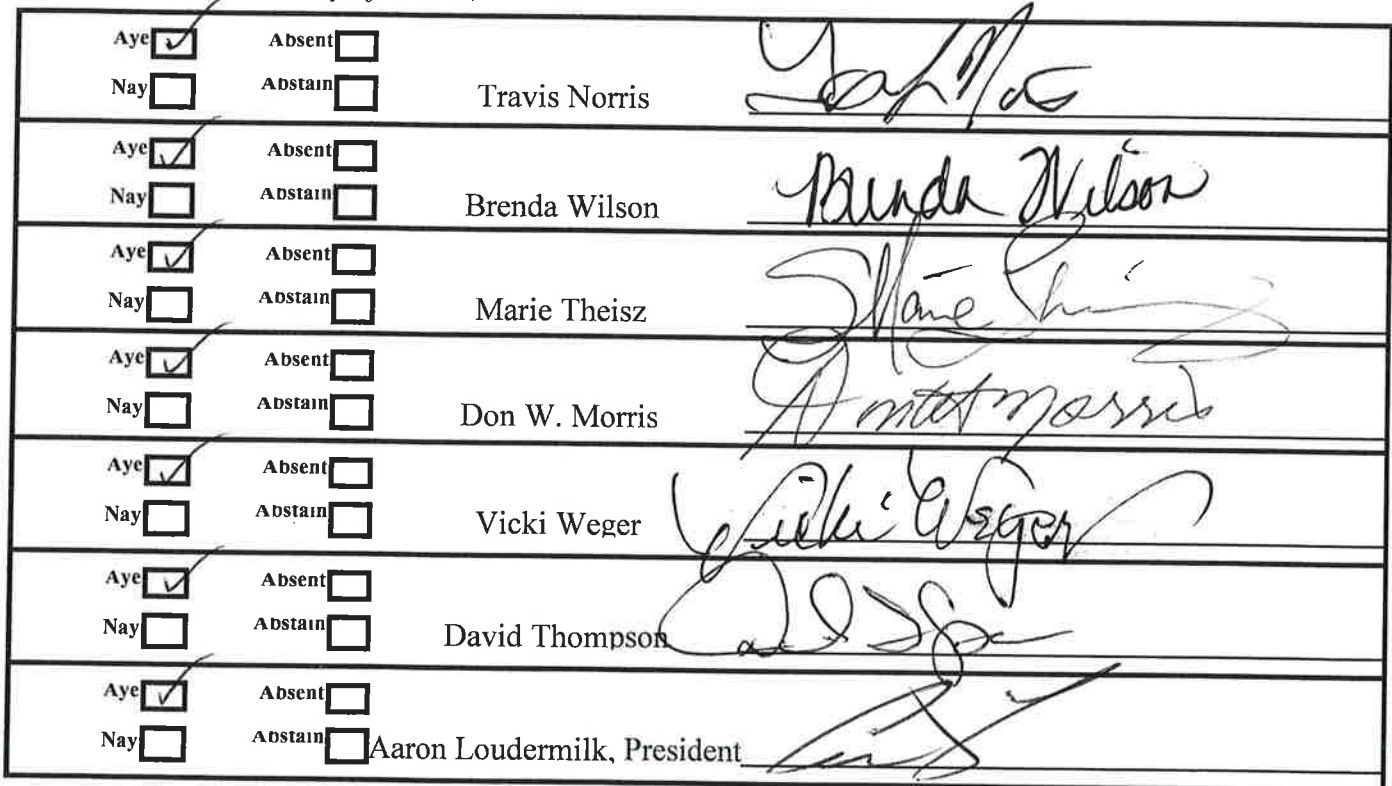 Aye Absent
Nay Abstain Travis Norris
Aye Absent
Nay Abstain Brenda Wilson Brenda Wilson
Aye Absent
Nay Abstain Marie Theisz Marie
Aye Absent
Nay Abstain Don W. Morris Morris
Aye Absent
Nay Abstain Vicki Weger Vicki Weger
Aye Absent
Nay Abstain David Thompson
Aye Absent
Nay Abstain Aaron Loudermilk, President